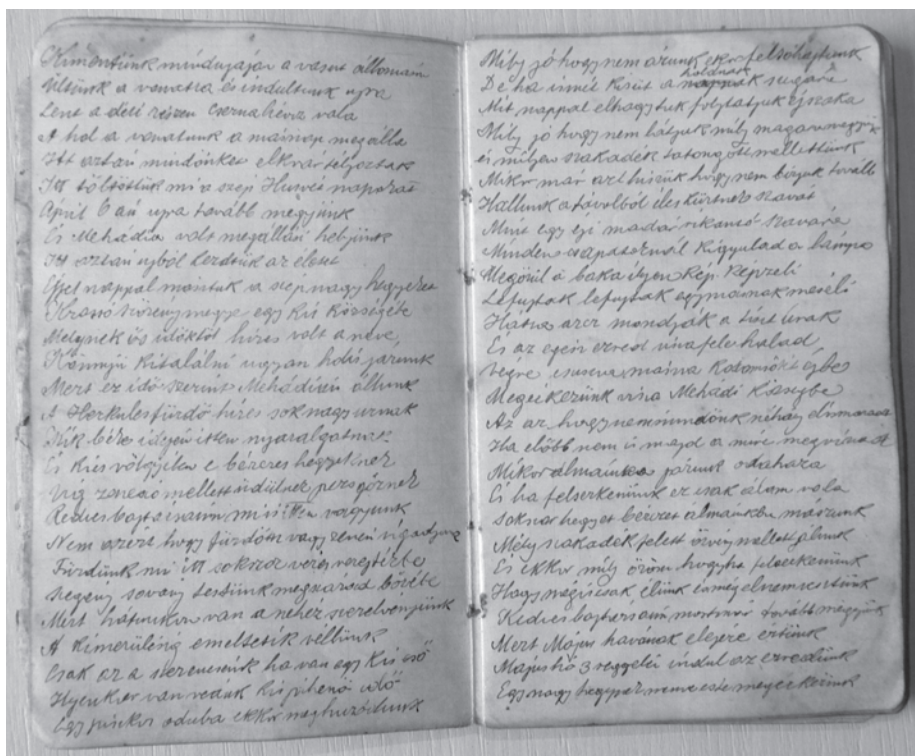 Kimentünk mindnyájan a vasut állomás
Ültünk a vonatra és indultunk ujra
Lent a déli részen Csernahévíz vala
A hol a vonatunk a másnap megálla
Itt aztán mindönket elkvártélyoztak
Itt töltöttük mi a szép Husvét napokat
April 6 án ujra tovább megyünk
És Mehádia volt megállási helyünk
Itt aztán ujbol kezdtük az életet
Éjjel nappal msztuk a szép nagy hegyeket
Krassó Szörény megye egy kis községébe
Melynek ös idöktöl híres volt a neve,
Könnyü kitalálni ugyan hol is járunk
Mert ez idö szerint Mehádián állunk
A Herkulesfürdö híres sok nagy urnak
Kik béke idején itten nyaralgatnak
És kies völgyében e bérces hegyeknek
Víg zeneszó mellett üdülnek pezsgöznek
Kedves bajtársaim mi is itten vagyunk
Nem azért hogy fürdött vagy zenén vígadjunk
Fürdünk mi itt sokszor véres verejtékbe
szegény sovány testünk megszárad bövébe
Mert hátunkon van a nehéz szerelvényünk
A kimerülésig emeltetik vélünk
Csak az a szerencsénk ha van egy kis esö
Ilyenkor van nekünk kis pihenö idö
Egy piszkos oduba ekkor meghuzodunk
Mily jó hogy nem ázunk ekkor felsóhajtunk
De ha ismét kisüt a holdnak sugára
Mit nappal elhagytuk folytatjuk éjszaka
Mily jó hogy nem látjuk mily magasra megyünk
és milyen szakadék tátongott mellettünk
Mikor már azt hisszük hogy nem bírjuk tovább
Hallunk a távolból éles kürtnek szavát
Mint egy éji madár rikantó szavára
Minden csapatoknál kigyulad a lámpa
Megörül a baka ilyenkép képzeli
Lefujtak lefujtak egymásnak meséli
Hátra arcz mondják a tiszt urak
És az egész ezred visszafele halad,
Végre csuszva mászva kolomiát érbe
Megérkezünk vissza Mehádi községbe
Az az hogy nem mindönk néhány elmarad
Ha elöbb nem is majd a mire megvirrad
Mikor álmainkba járunk odahaza
És ha felserkenünk ez csak álom vala
sokszor hegyet bércet álmainkba mászunk
Mély szakadék felett ösvény mellett állunk
És ekkor mily öröm hogyha felserkenünk
Hogy mégis csak élünk és még elnem estünk
Kedves bajtársaim mostmár tovább megyünk
Mert Május havának elejére értünk
Május hó 3 reggelén indul az ezredünk
Egy nagy hegyhez menve este megérkezünk